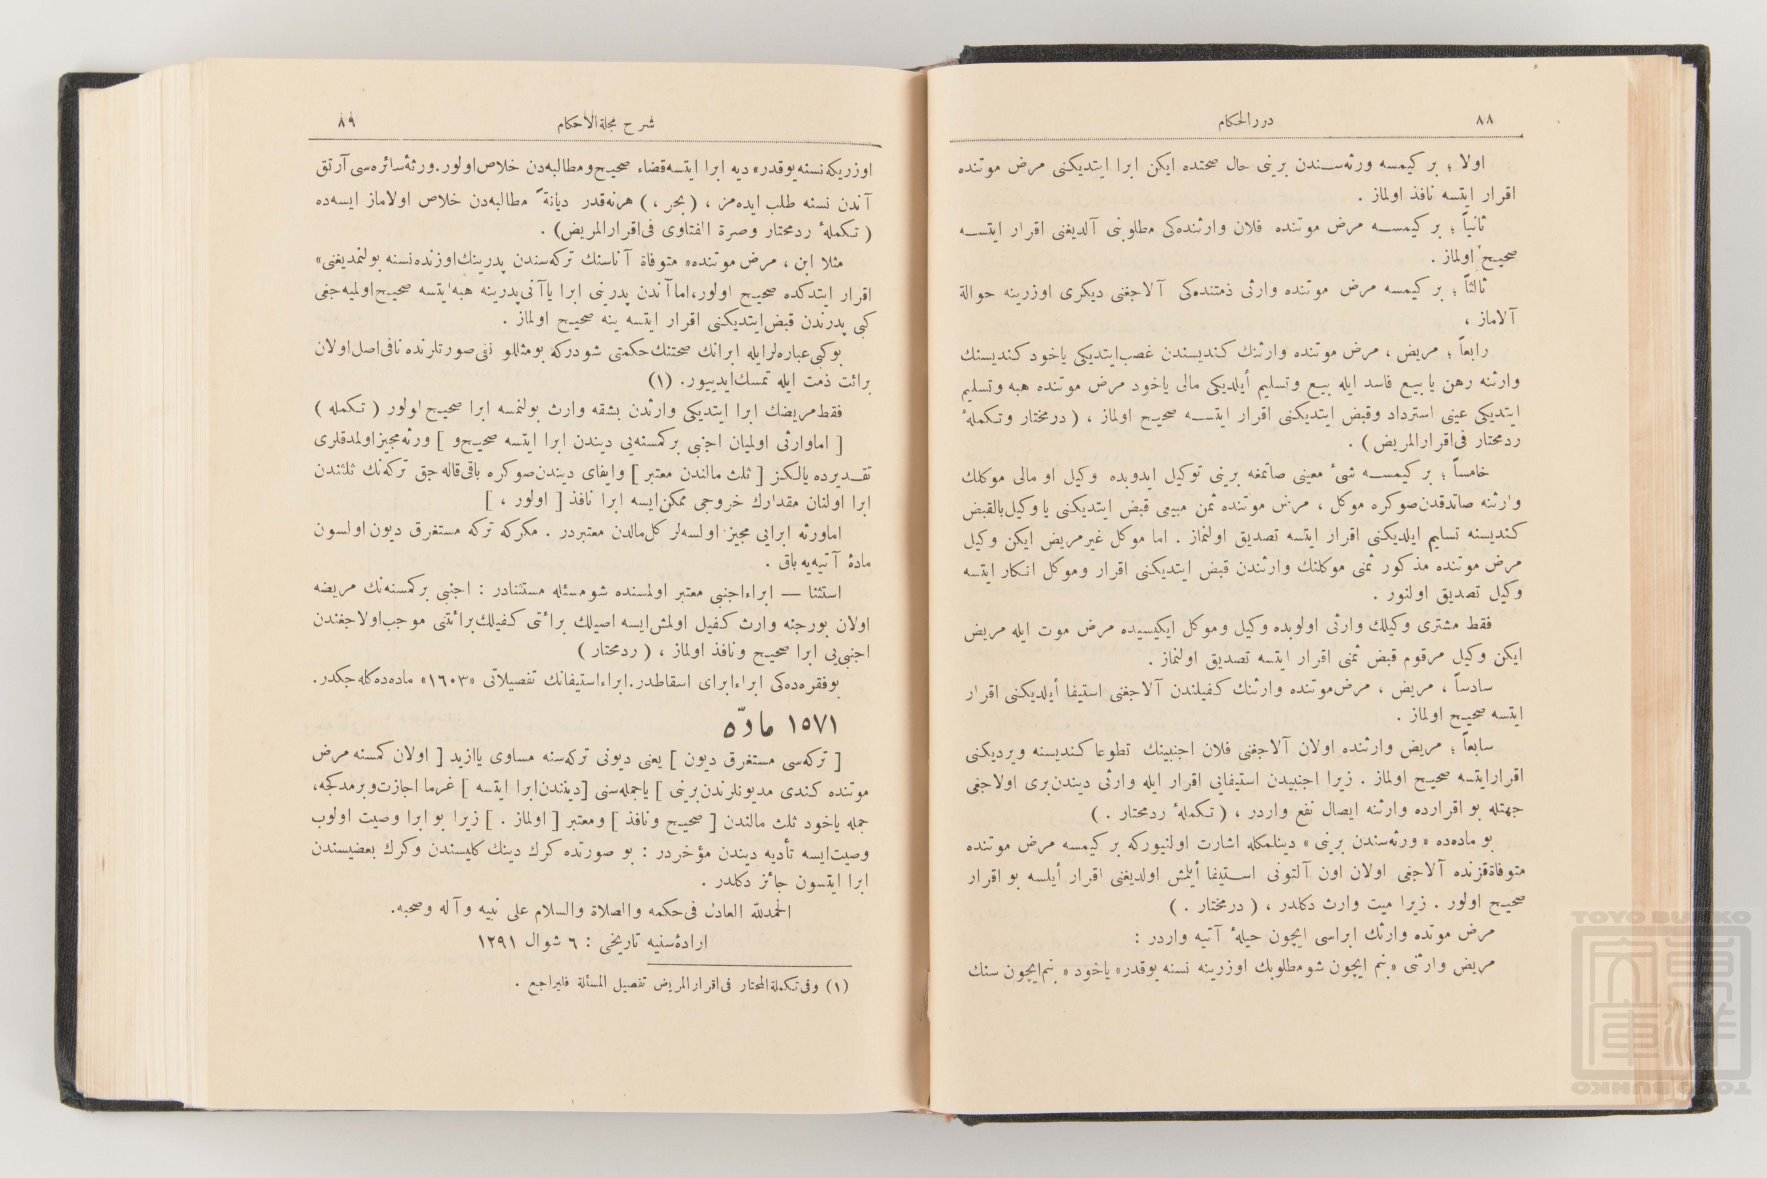 ٨٨
دررالحكام
اولا ؛ بر كیمسه ورثه‌سـندن برینی حال صحتده ایكن ابرا ایتدیكنی مرض موتنده
اقرار ایتسه نافذ اولماز .
ثانیاً ؛ بر كیمسـه مرض موتنده فلان وارثنده‌كی مطلوبنی آلدیغنی اقرار ایتسـه
صحیح اولماز .
ثالثاً ؛ بر كیمسه مرض موتنده وارثی ذمتنده‌كی آلاجغنی دیكری اوزرینه حوالة
آلاماز ،
رابعاً ؛ مریض ، مرض موتنده وارثنك كندیسندن غصب‌ایتدیكی یاخود كندیسنك
وارثنه رهن یا بیع فاسد ایله بیع وتسلیم أیلدیكی مالی یاخود مرض موتنده هبه وتسلیم
ایتدیكی عینی استرداد وقبض ایتدیكنی اقرار ایتسـه صحیح اولماز ، ( درمختار وتكملهٔ
ردمختار فی‌اقرارالمریض ) .
خامساً ؛ بر كیمسـه شیٔ معینی صاتمغه برینی توكیل ایدوبده وكیل او مالی موكلك
وارثنه صاتدقدن‌صوكره موكل ، مرض موتنده ثمن مبیعی قبض ایتدیكنی یا وكیل‌بالقبض
كندیسنه تسلیم ایلدیكنی اقرار ایتسه تصدیق اولنماز . اما موكل غیرمریض ایكن وكیل
مرض موتنده مذكور ثمنی موكلنك وارثندن قبض ایتدیكنی اقرار وموكل انكار ایتسه
وكیل تصدیق اولنور .
فقط مشتری وكیلك وارثی اولوبده وكیل وموكل ایكیسیده مرض موت ایله مریض
ایكن وكیل مرقوم قبض ثمنی اقرار ایتسه تصدیق اولنماز .
سادساً ، مریض ، مرض‌موتنده وارثنك كفیلندن آلاجغنی استیفا أیلدیكنی اقرار
ایتسه صحیح اولماز .
سابعاً ؛ مریض وارثنده اولان آلاجغنی فلان اجنبینك تطوعا كندیسنه ویردیكنی
اقرارایتسه صحیح اولماز . زیرا اجنبیدن استیفایی اقرار ایله وارثی دیندن‌بری اولاجغی
جهتله بو اقرارده وارثنه ایصال نفع واردر ، ( تكملهٔ ردمختار . )
بو ماده‌ده « ورثه‌سندن برینی » دینلمكله اشارت اولنیوركه بر كیمسه مرض موتنده
متوفاةقزنده آلاجغی اولان اون آلتونی اسـتیفا أیلمش اولدیغنی اقرار أیلسه بو اقرار
صحیح اولور . زیرا میت وارث دكلدر ، ( درمختار . )
مرض موتده وارثك ابراسی ایچون حیلهٔ آتیه واردر :
مریض وارثنی « بنم ایچون شو مطلوبك اوزرینه نسنه یوقدر » یاخود « بنم‌ایچون سنك
شرح مجلةالاحكام
٨٩
اوزریكه نسنه یوقدر» دیه ابرا ایتسه قضاء صحیح ومطالبه‌دن خلاص‌اولور.ورثهٔ‌سائره‌سی آرتق
آندن نسنه طلب ایده‌مز ، ( بحر ، ) هرنه‌قدر دیانةً مطالبه‌دن خلاص اولاماز ایسه‌ده
( تكملهٔ ردمختار وصرة الفتاوی فی‌اقرارالمریض ) .
مثلا ابن ، مرض موتنده « متوفاة آناسنك تركه‌سندن پدرینك اوزنده نسنه بولنمدیغنی»
اقرار ایتدكده صحیح اولور،اماآندن پدرنی ابرا یاآنی‌پدرینه هبه‌ایتسه صحیح‌اولمیه‌جغی
كبی پدرندن قبض‌ایتدیكنی اقرار ایتسه ینه صحیح اولماز .
بوكبی‌عباره‌لرایله ابرانك صحتنك حكمتی شودركه بومثللو نفی صورتلرنده نافی‌اصل‌اولان
برائت ذمت ایله تمسك‌ایدییور. (١)
فقط‌مریضك ابرا ایتدیكی وارثدن بشقه وارث بولنمسه ابرا صحیح‌اولور ( تـكمله )
[ اماوارثی اولمیان اجنبی بر كمسنه‌یی دیندن ابرا ایتسه صحیح‌و ] ورثه‌مجیزاولمدقلری
تقدیرده یالكز [ ثلث مالندن معتبر ] وایفای دیندن‌صوكره باقی‌قاله‌جق تركه‌نك ثلثندن
ابرا اولنان مقدارك خروجی ممكن‌ایسه ابرا نافذ [ اولور ، ]
اماورثه ابرایی مجیز اولسه‌لر كل‌مالدن معتبردر . مكركه تركه مستغرق دیون اولسون
مادهٔ آتیه‌یه باق .
استثنا — ابراءاجنبی معتبر اولمسنده شو مسئله مستثنادر : اجنبی بركمسنه‌نك مریضه
اولان بورجنه وارث كفیل اولمش‌ایسه اصیلك برائتی كفیلك‌برائتنی موجب‌اولاجغندن
اجنبی‌یی ابرا صحیح ونافذ اولماز ، ( ردمختار )
بوفقره‌ده‌كی ابراءابرای اسقاطدر.ابراءاستیفانك تفصیلاتی «١٦٠٣» ماده‌ده كله‌جكدر.
١٥٧١ مادّه
[ تركه‌سی مستغرق دیون ] یعنی دیونی تركه‌سنه مساوی یاازید [ اولان كمسنه مرض
موتنده كندی مدیونلرندن‌برینی ] یاجمله‌سنی [دینندن‌ابرا ایتسه ] غرما اجازت‌ویرمدكجه،
جمله یاخود ثلث مالندن [ صحیح ونافذ ] ومعتبر [ اولماز . ] زیرا بو ابرا وصیت اولوب
وصیت‌ایسه تأدیه دیندن مؤخردر : بو صورتده كرك دینك كلیسندن وكرك بعضیسندن
ابرا ایتسون جائز دكلدر .
الحمدلله العادل فی‌حكمه والصلاة والسلام علی نبیه وآله وصحبه.
ارادهٔ‌سنیه تاریخی : ٦ شوال ١٢٩١
(١) وفی‌تكملةالمختار فی‌اقرارالمریض تفصیل المسئلة فلیراجع .
TOYO BUNKO
TOYO BUNKO